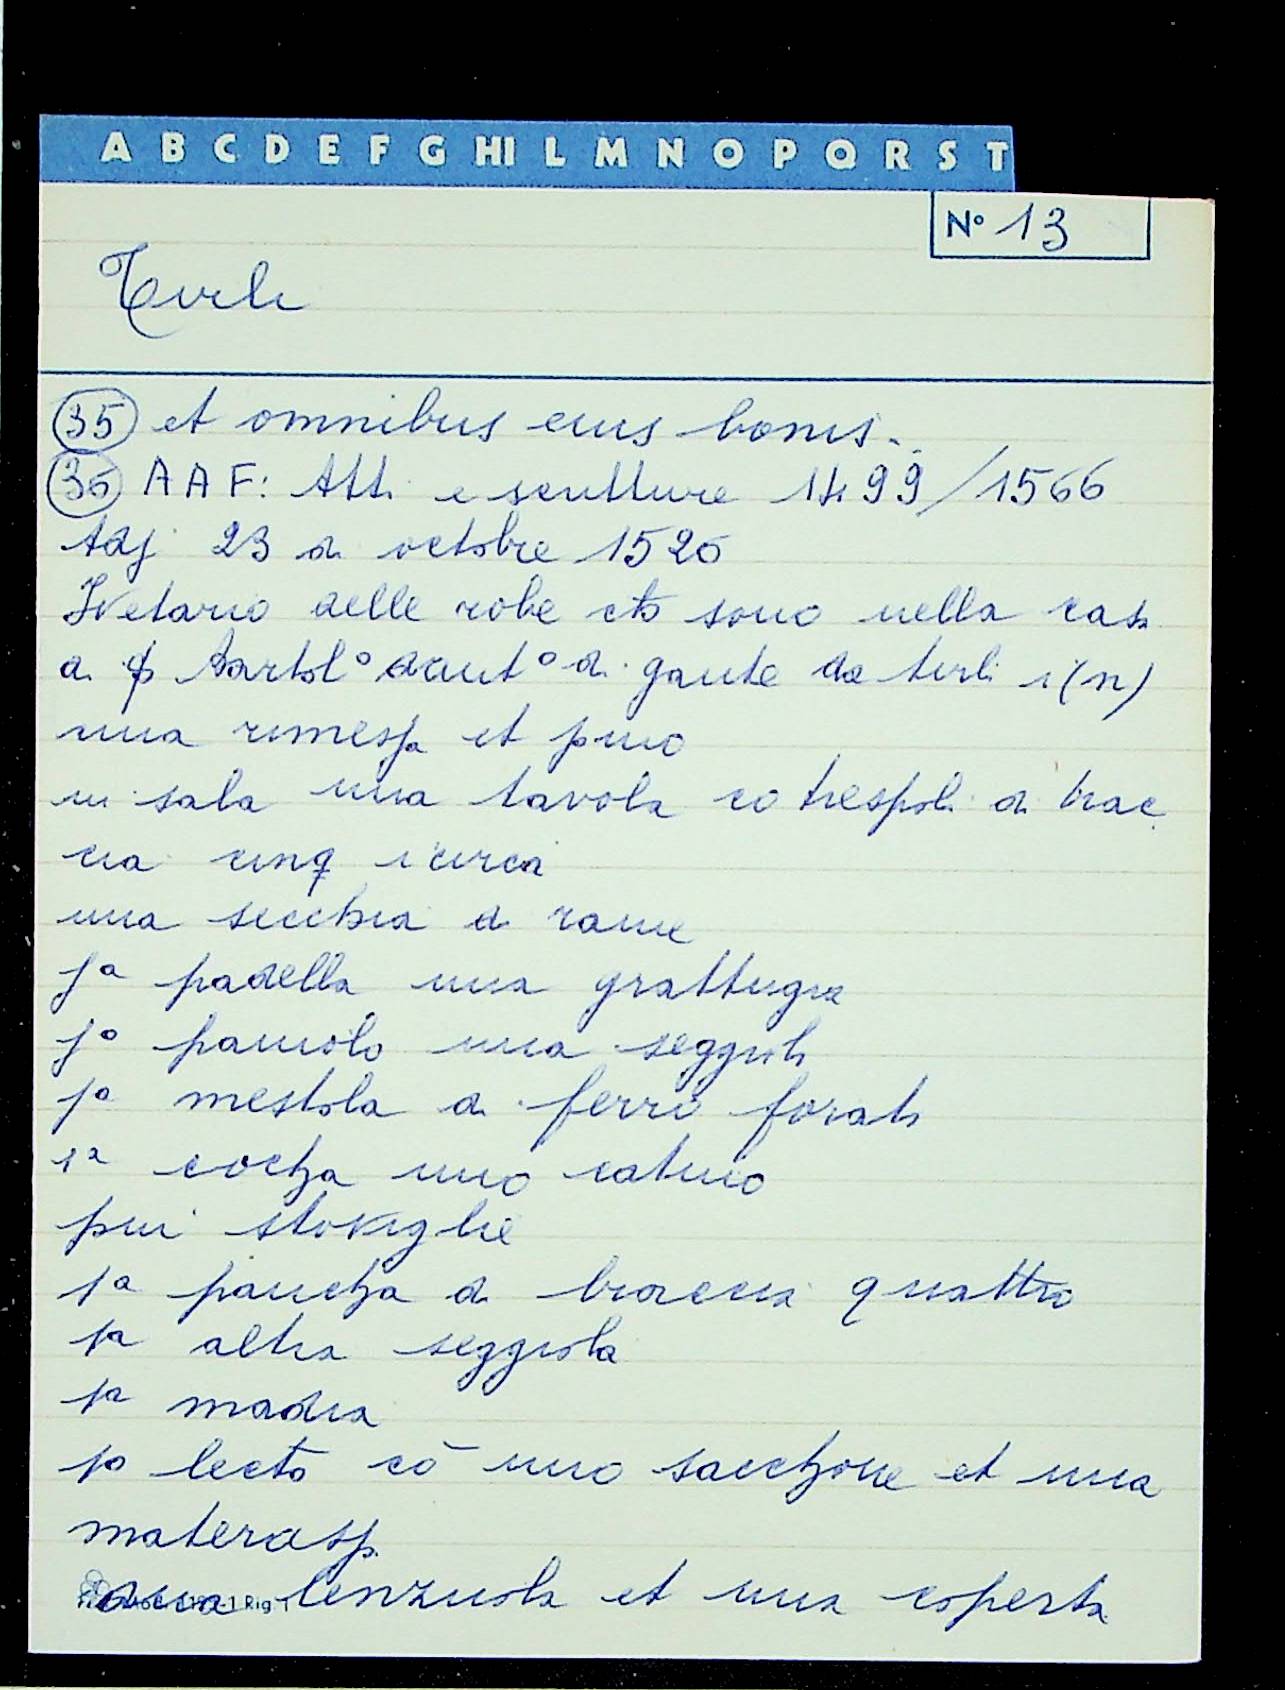 A B C D E F G HI L M N O P Q R S T
Nº 13
Tirli
35 et omnibus eius bonis.
36 A A F: Atti e scritture 1499/1566
Adj 23 di octobre 1526
Ivetario delle robe cħ sono nella casa
di Bartolº dantº di gante da tirli i(n)
una rimessa et pmo
in sala una tavola cō trespoli di brac
cia cinq i circa
una secchia di rame
jª padella una grattugia
jº paiuolo una seggiola
jª mestola di ferro forata
1ª cocħa uno catino
piu stoviglie
1ª pancħa di braccia quattro
1ª altra seggiola
1ª madia
1º lecto cō uno saccħone et una
materassa
dua lenzuola et una coperta